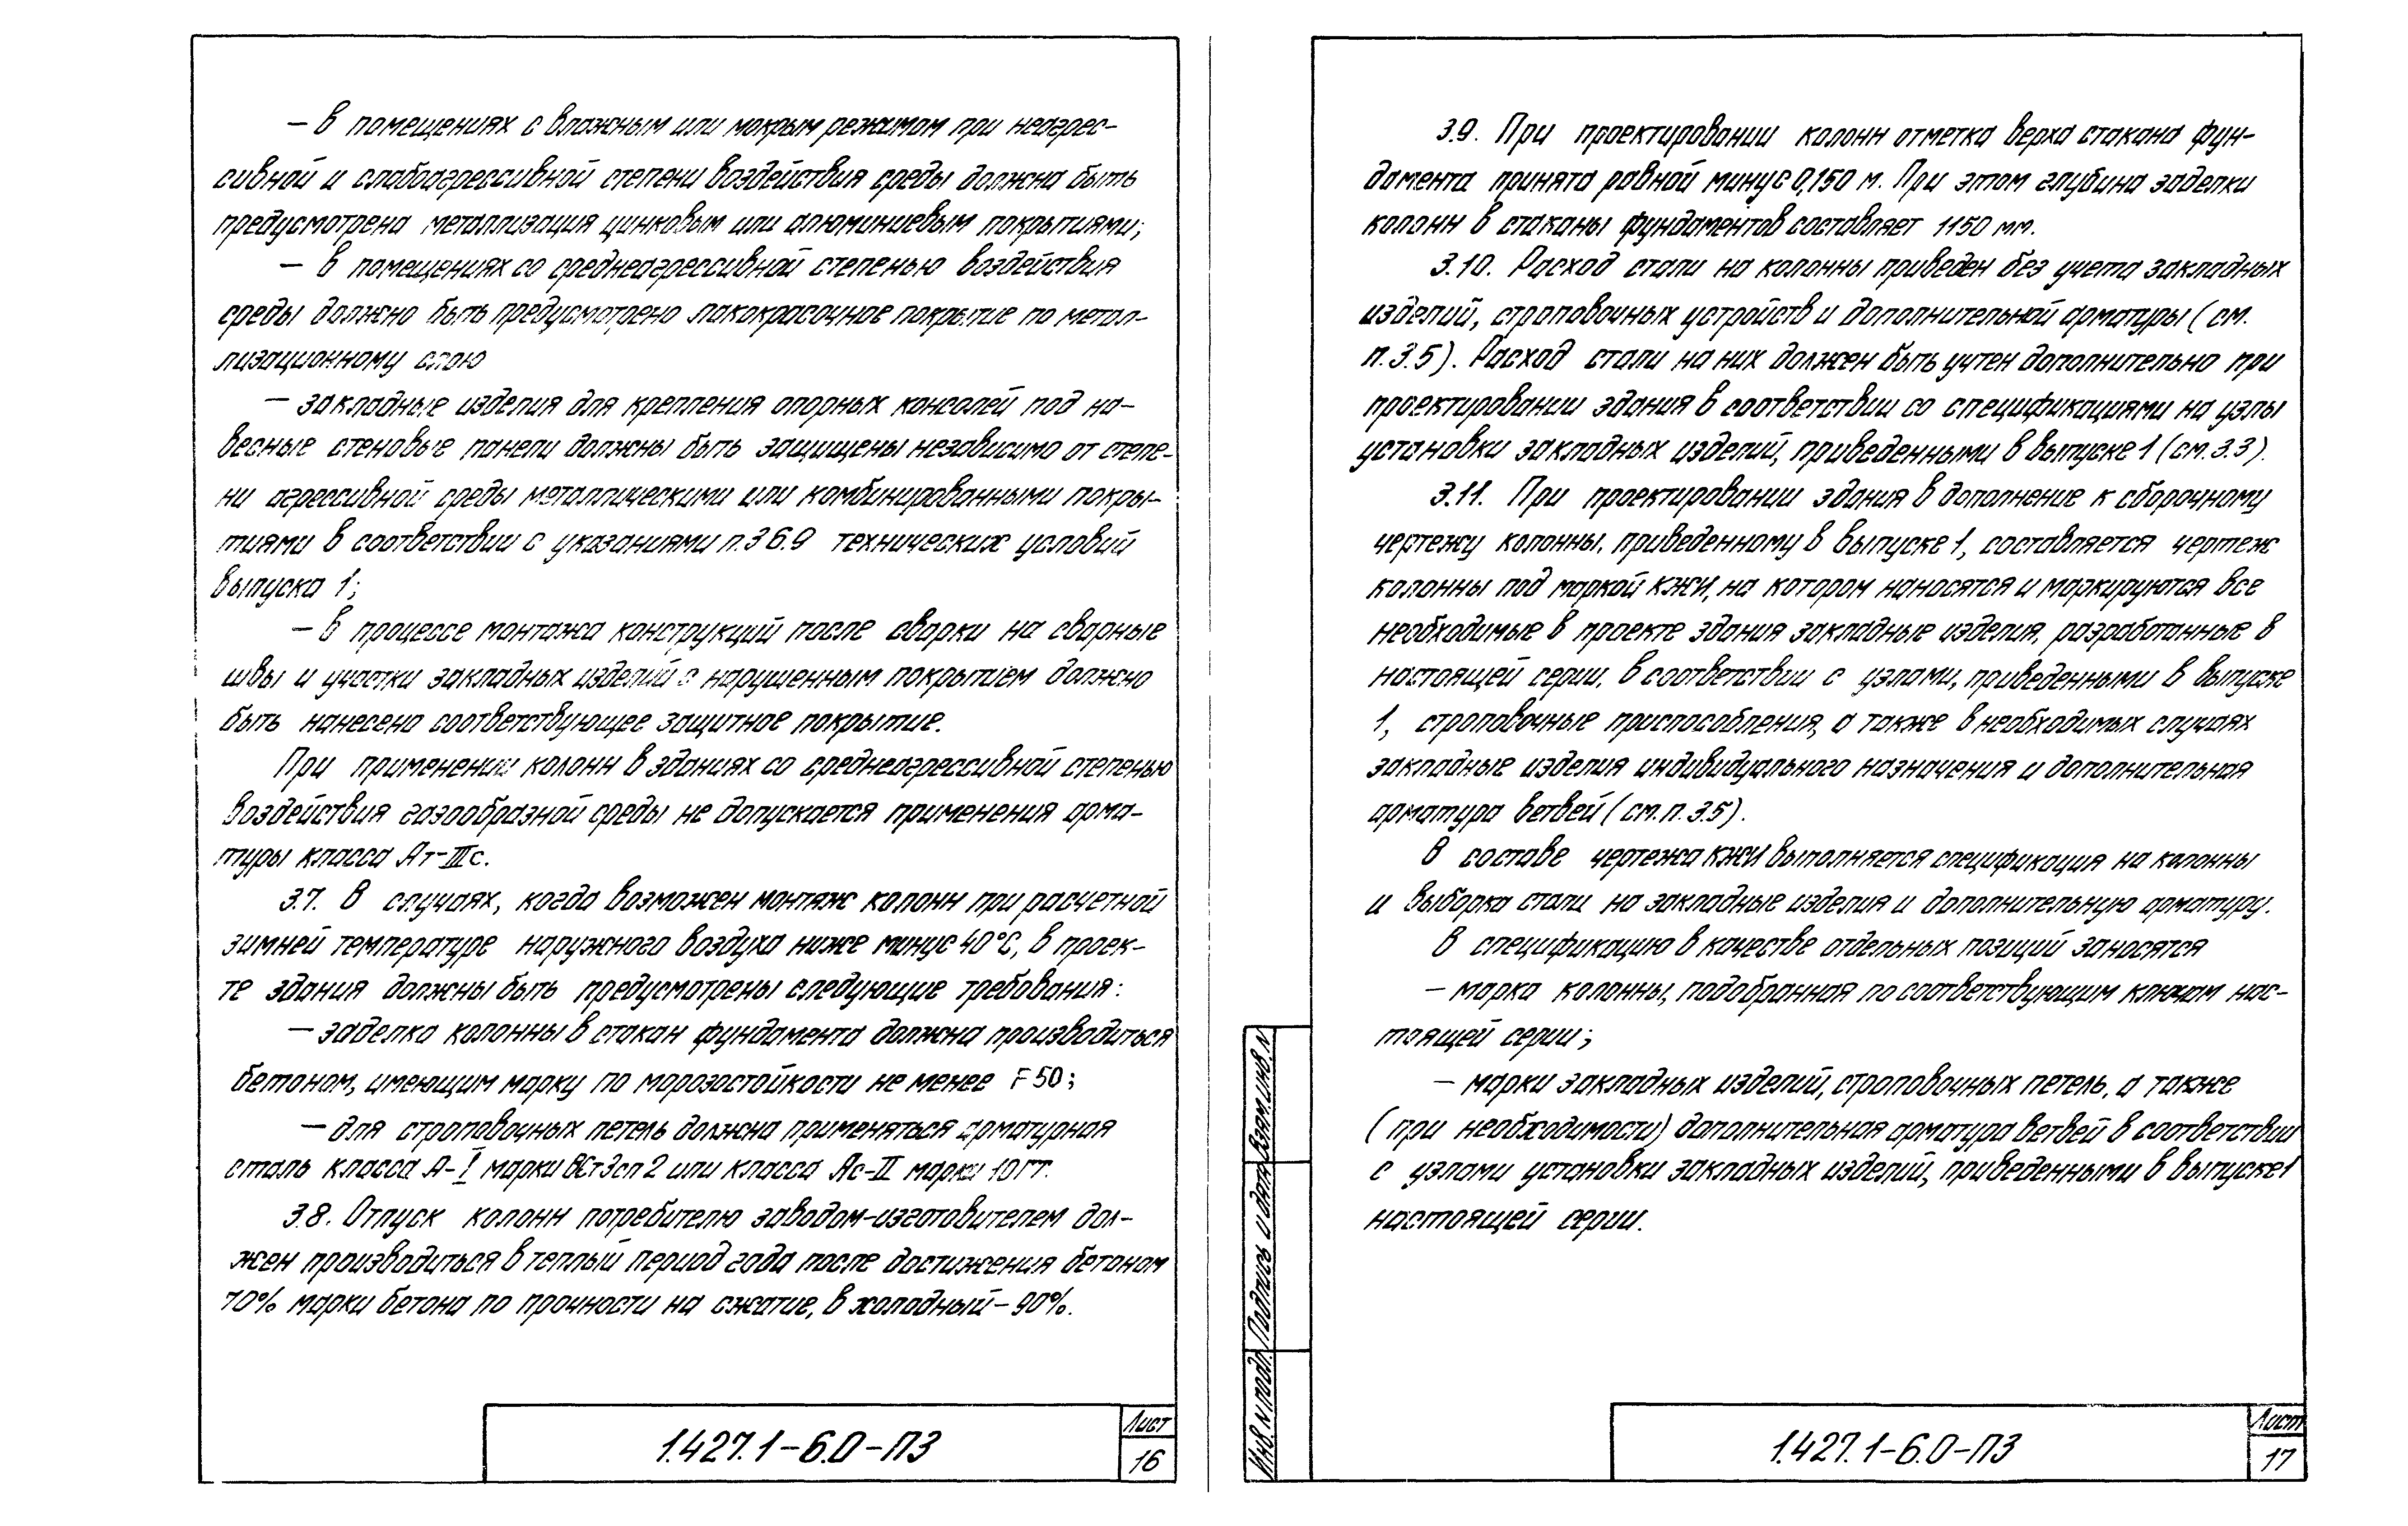 — в помещениях с влажным или мокрым режимом при неагрес-
сивной и слабоагрессивной степени воздействия среды должна быть
предусмотрена металлизация цинковым или алюминиевым покрытиями;
— в помещениях со среднеагрессивной степенью воздействия
среды должно быть предусмотрено лакокрасочное покрытие по метал-
лизационному слою
— закладные изделия для крепления опорных консолей под на-
весные стеновые панели должны быть защищены независимо от степе-
ни агрессивной среды металлическими или комбинированными покры-
тиями в соответствии с указаниями п.3 6.9 технических условий
выпуска 1;
— в процессе монтажа конструкций после сварки на сварные
швы и участки закладных изделий с нарушенным покрытием должно
быть нанесено соответствующее защитное покрытие.
При применении колонн в зданиях со среднеагрессивной степенью
воздействия газообразной среды не допускается применения арма-
туры класса Ат-IIIс.
3.7. В случаях, когда возможен монтаж колонн при расчетной
зимней температуре наружного воздуха ниже минус 40°С, в проек-
те здания должны быть предусмотрены следующие требования:
— заделка колонны в стакан фундамента должна производиться
бетоном, имеющим марку по морозостойкости не менее F50;
— для строповочных петель должна применяться арматурная
сталь класса А-I марки ВСт3сп2 или класса Ас-II марки 10ГТ.
3.8. Отпуск колонн потребителю заводом-изготовителем дол-
жен производиться в теплый период года после достижения бетоном
70% марки бетона по прочности на сжатие, в холодный – 90%.
1.427.1-6.0-ПЗ
Лист
16
3.9. При проектировании колонн отметка верха стакана фун-
дамента принята равной минус 0,150 м. При этом глубина заделки
колонн в стаканы фундаментов составляет 1150 мм.
3.10. Расход стали на колонны приведен без учета закладных
изделий, строповочных устройств и дополнительной арматуры (см.
п.3.5). Расход стали на них должен быть учтен дополнительно при
проектировании здания в соответствии со спецификациями на узлы
установки закладных изделий, приведенными в выпуске 1 (см. 3.3).
3.11. При проектировании здания в дополнение к сборочному
чертежу колонны, приведенному в выпуске 1, составляется чертеж
колонны под маркой КЖИ, на котором наносятся и маркируются все
необходимые в проекте здания закладные изделия, разработанные в
настоящей серии, в соответствии с узлами, приведенными в выпуске
1, строповочные приспособления, а также в необходимых случаях
закладные изделия индивидуального назначения и дополнительная
арматура ветвей (см. п. 3.5).
В составе чертежа КЖИ выполняется спецификация на колонны
и выборка стали на закладные изделия и дополнительную арматуру.
В спецификацию в качестве отдельных позиций заносятся
— марка колонны, подобранная по соответствующим ключам нас-
тоящей серии;
— марки закладных изделий, строповочных петель, а также
(при необходимости) дополнительная арматура ветвей в соответствии
с узлами установки закладных изделий, приведенными в выпуске 1
настоящей серии.
Взам.инв.N
Подпись и дата
Инв.N подл.
1.427.1-6.0-ПЗ
Лист
17